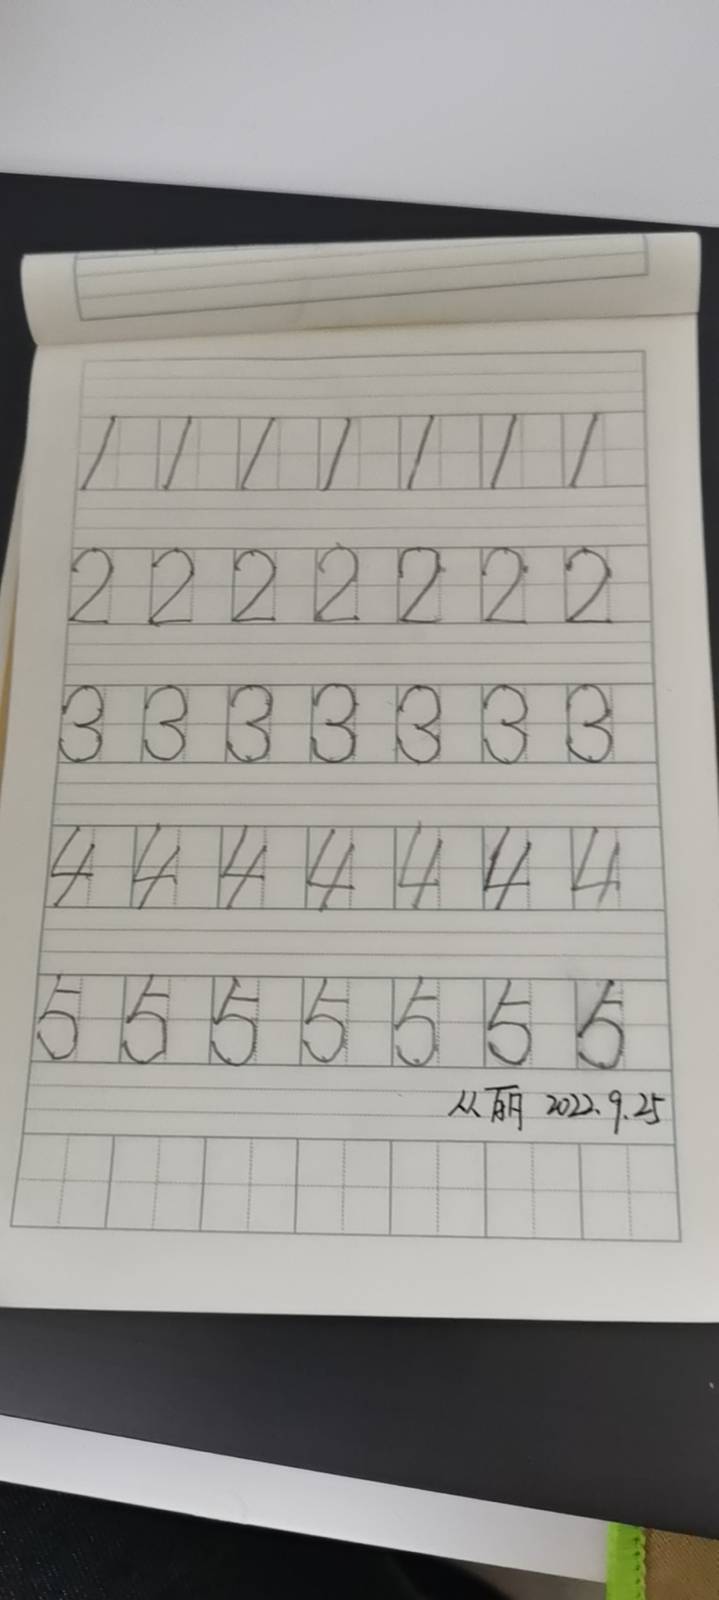 1 1 1 1 1 1 1
2 2 2 2 2 2 2
3 3 3 3 3 3 3
4 4 4 4 4 4 4
5 5 5 5 5 5 5
从丽 2022.9.25